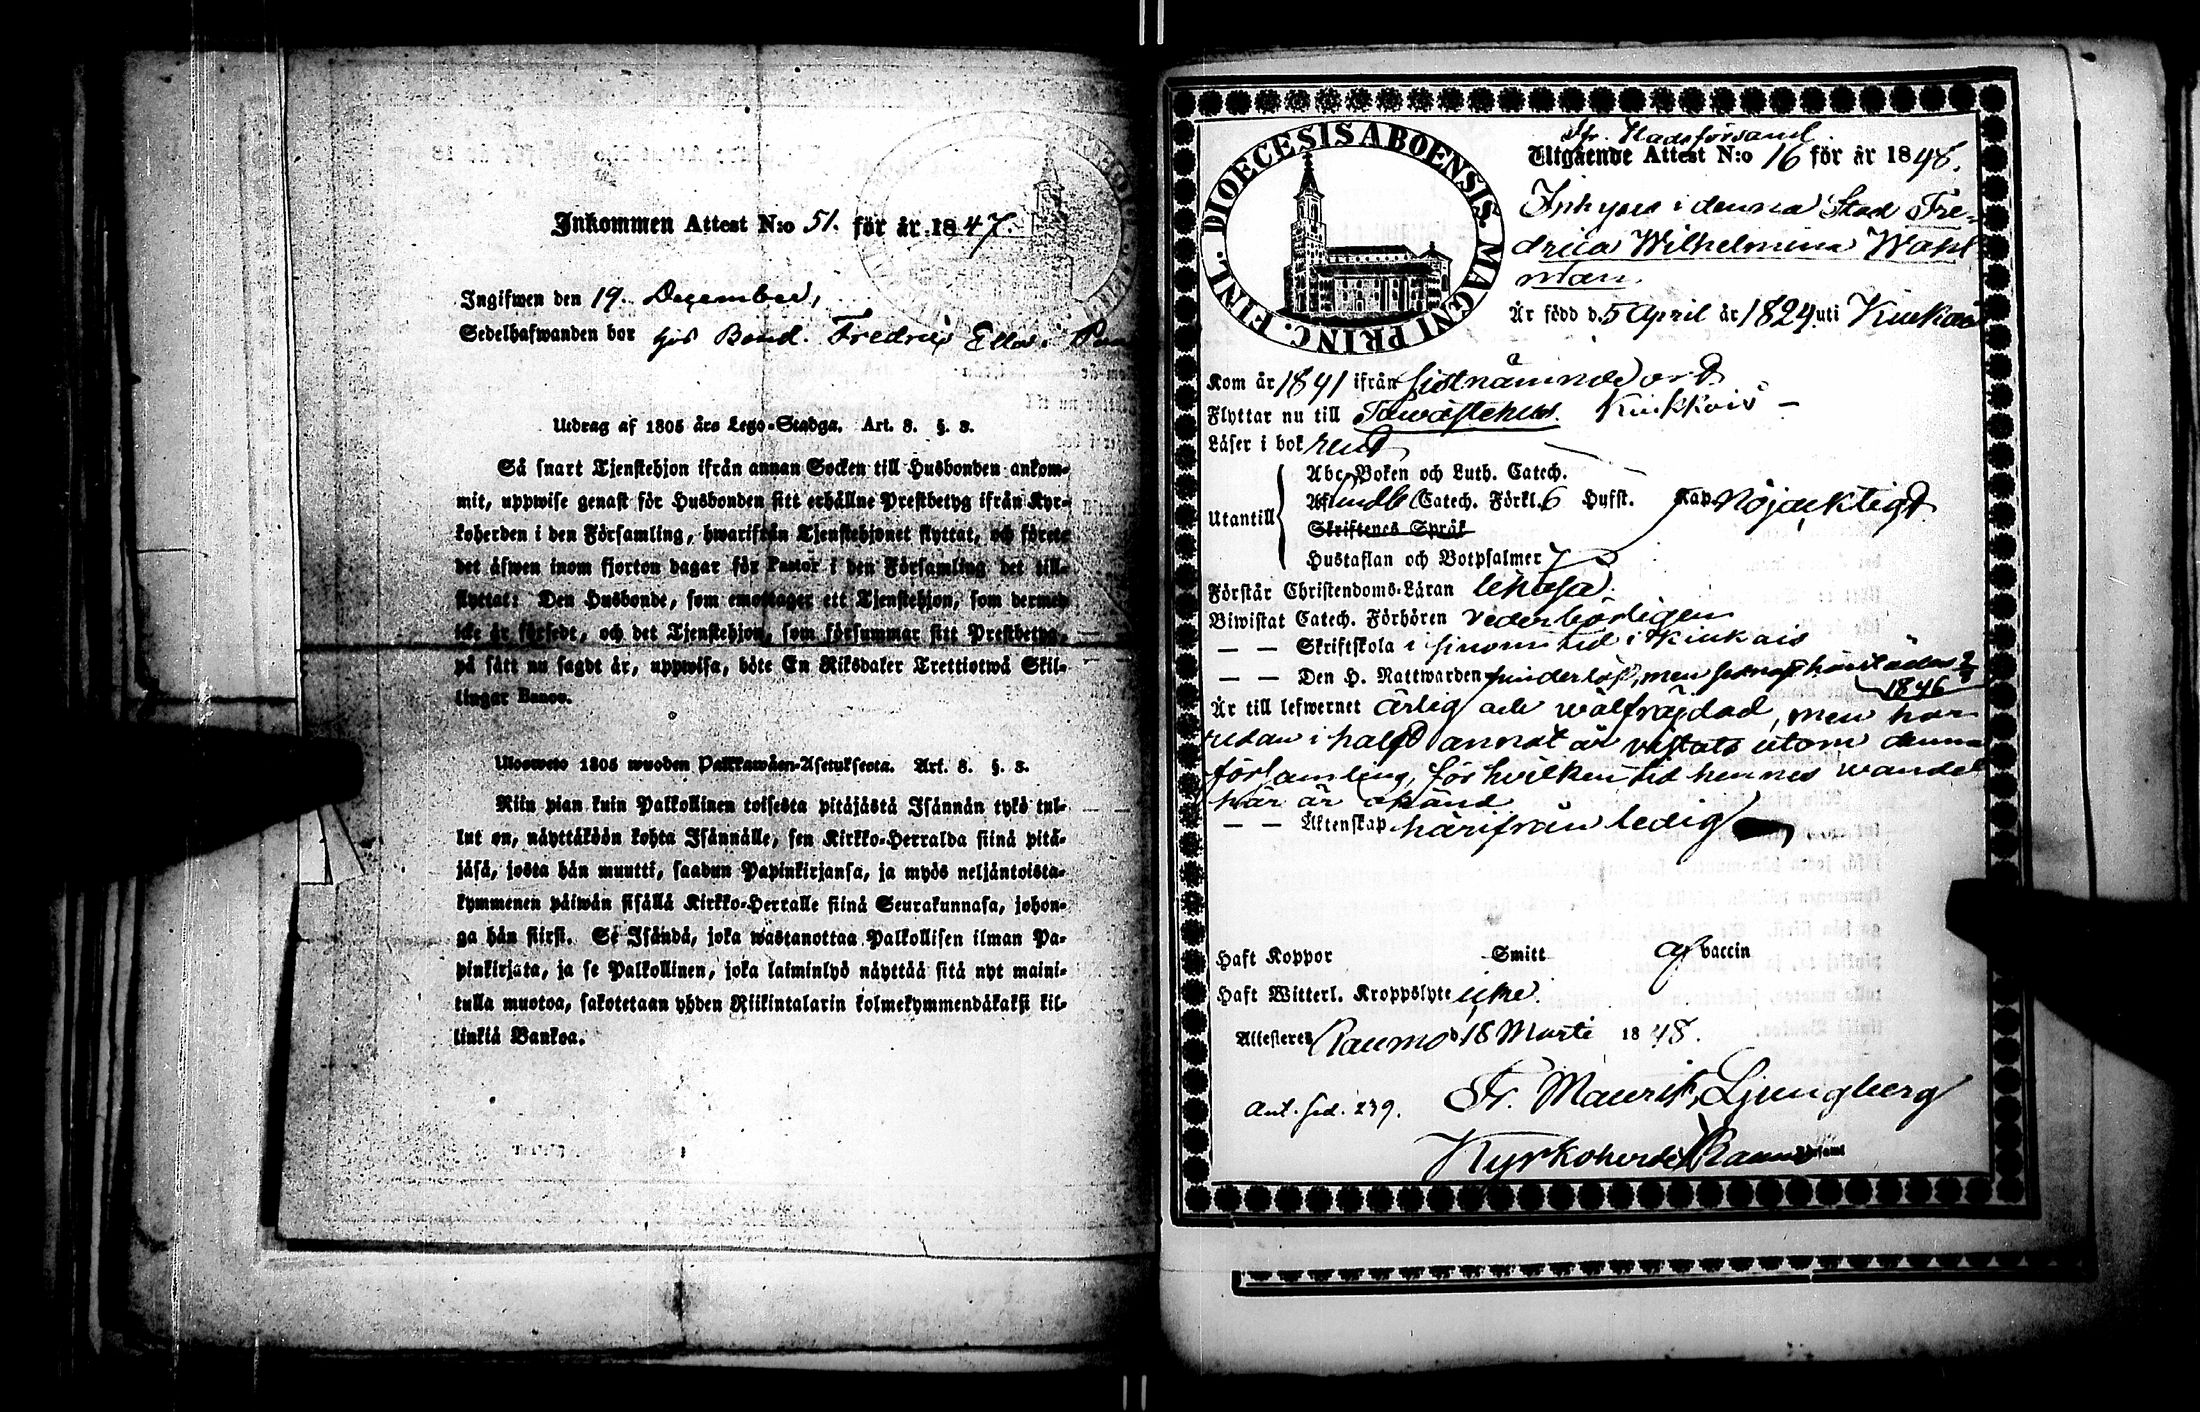 Inkommen Attest N:o 51. för år 1847.
Ingifwen den 19. December,
Sedelhafwanden bor hos Bond. Fredric
Utdrag af 1805 års Lego-Stadga. Art. 8. §. 3.
Så snart Tjenstehjon ifrån annan Socken till Husbonden ankom-
mit, uppwise genast för Husbonden sitt erhållne Prestbetyg ifrån Kyr-
koherden i den Församling, hwarifrån Tjenstehjonet flyttat, och förete
det äfwen inom fjorton dagar för Pastor i den Församling det till-
flyttat: Den Husbonde, som emottager ett Tjenstehjon, som dermed
icke är försedt, och det Tjenstehjon, som försummar sitt Prestbetyg,
på sätt nu sagdt är, uppwisa, böte En Riksdaler Trettiotwå Skil-
lingar Banco.
Ulosweto 1805 wuoden Palkkawäen-Asetuksesta. Art. 8. §. 3.
Niin pian kuin Palkollinen toisesta pitäjästä Isännän tykö tul-
lut on, näyttäköön kohta Isännälle, sen Kirkko-Herralda siinä pitä-
jäsä, josta hän muutti, saadun Papinkirjansa, ja myös neljäntoista-
kymmenen päiwän sisällä Kirkko-Herralle siinä Seurakunnasa, johon-
ga hän siirsi. Se Isändä, joka wastanottaa Palkollisen ilman Pa-
pinkirjata, ja se Palkollinen, joka laiminlyö näyttää sitä nyt maini-
tulla muotoa, sakotetaan yhden Riikintalarin kolmekymmendäkaksi kil-
linkiä Bankoa.
FINL. DIOECESIS ABOENSIS MAGNI PRINC.
fr. Stadsförsaml.
Utgående Attest N:o 16 för år 1848.
Inhyses i denna Stad Fre-
drica Wilhelmina Wahl
man.
Är född d. 5 April år 1824. uti Kiukais
Kom år 1841 ifrån sistnämnde ort
Flyttar nu till Tawastehus. Kiukkais –
Läser i bok rent
Utantill
Abc-Boken och Luth. Catech.
Catech. Förkl. 6 Hufst. Kap. Nöjacktigt
Skriftenes Språk
Hustaflan och Botpsalmer 7
Förstår Christendoms-Läran likaså.
Biwistat Catech. Förhören vederbörligen
— — Skriftskola i sinom tid i Kiukais
— — Den H. Nattwarden hinderlös, men senast härstädes
1846
Är till lefwernet ärlig och wälfräjdad, men har
redan i halft annat år vistats utom denna
församling, för hvilken tid hennes wandel
här är okänd
— — Äktenskap härifrån ledig
Haft Koppor Smitt af vaccin
Haft Witterl. Kroppslyte icke.
Attesteres Raumo d. 18 Marti 1848.
Fr. Maurit. Ljungberg
Ant. sid. 239.
Kyrkoherde i Raumo församl